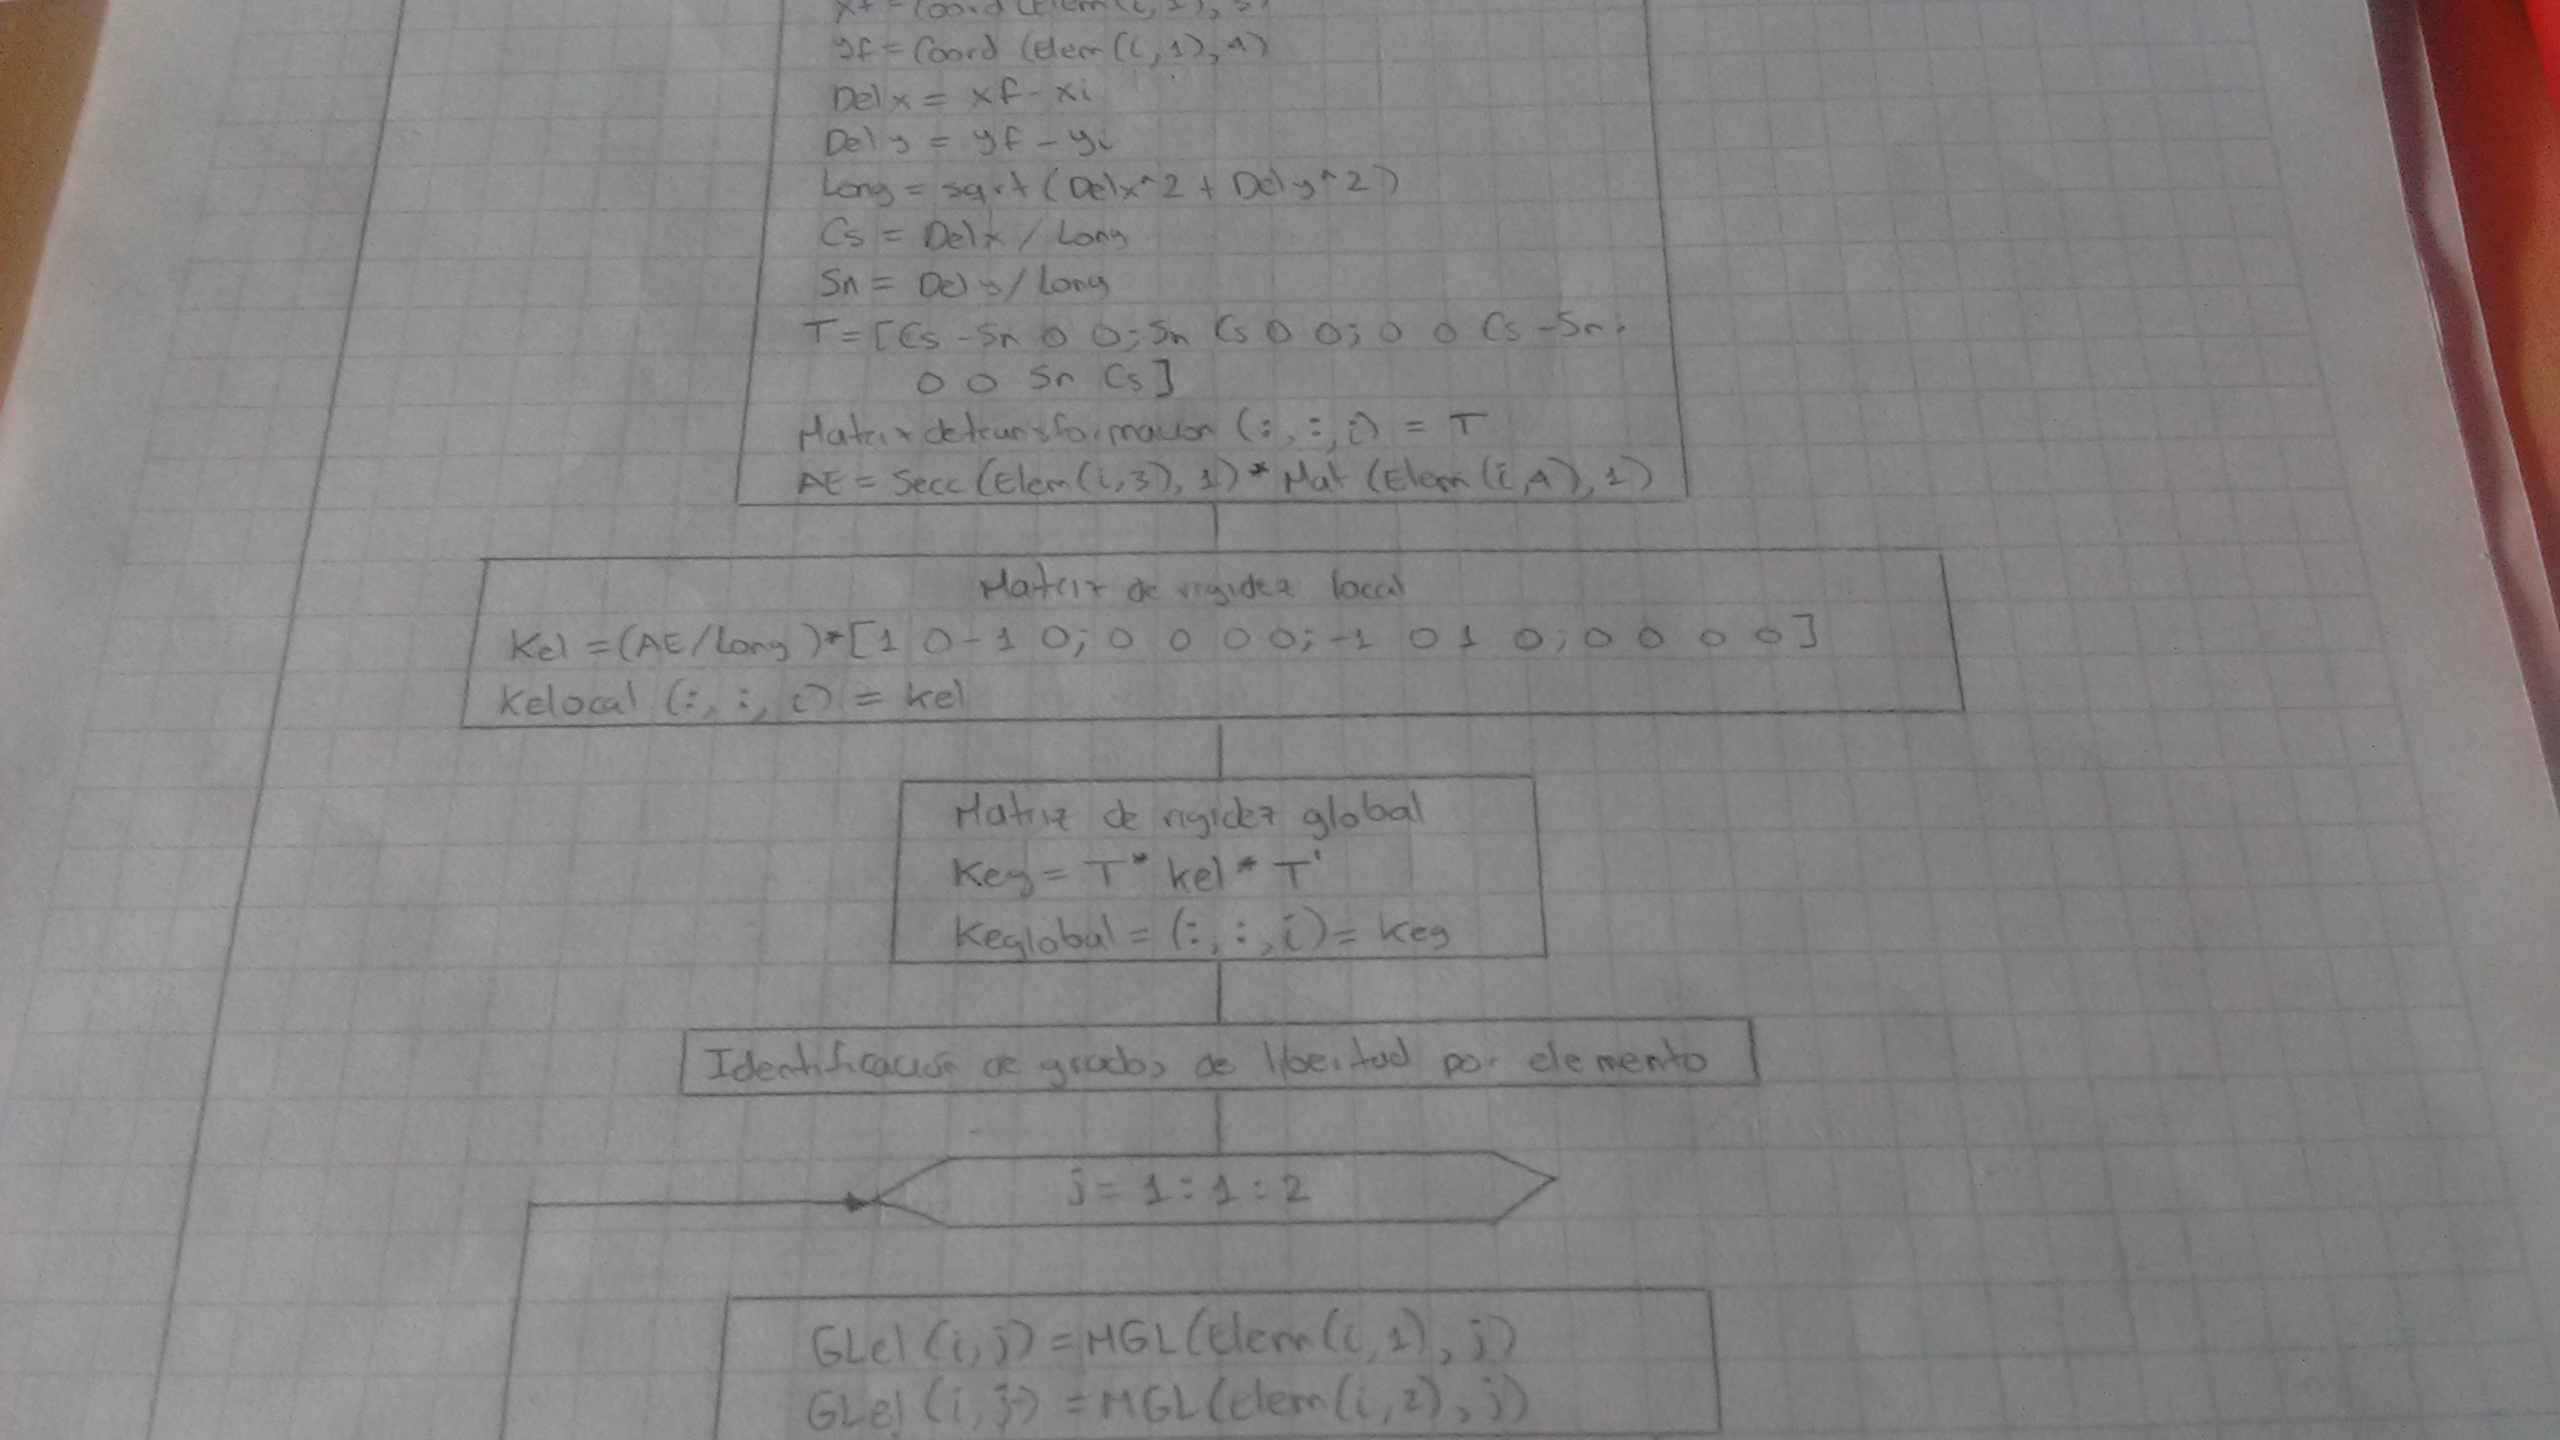 xf = Coord (Elem(i,1),3)
yf = Coord (Elem(i,1),4)
Delx = xf - xi
Dely = yf - yi
Long = sqrt (Delx^2 + Dely^2)
Cs = Delx / Long
Sn = Dely / Long
T = [Cs -Sn 0 0; Sn Cs 0 0; 0 0 Cs -Sn;
0 0 Sn Cs]
Matrizdetransformacion (:,:,i) = T
AE = Secc (Elem(i,3),1) * Mat (Elem(i,4),1)
Matriz de rigidez local
Kel = (AE/Long)*[1 0 -1 0; 0 0 0 0; -1 0 1 0; 0 0 0 0]
Kelocal (:,:,i) = kel
Matriz de rigidez global
Keg = T * kel * T'
Keglobal = (:,:,i) = keg
Identificación de grados de libertad por elemento
j = 1 : 1 : 2
GLel (i,j) = MGL (Elem(i,1), j)
GLel (i,j) = MGL (Elem(i,2), j)